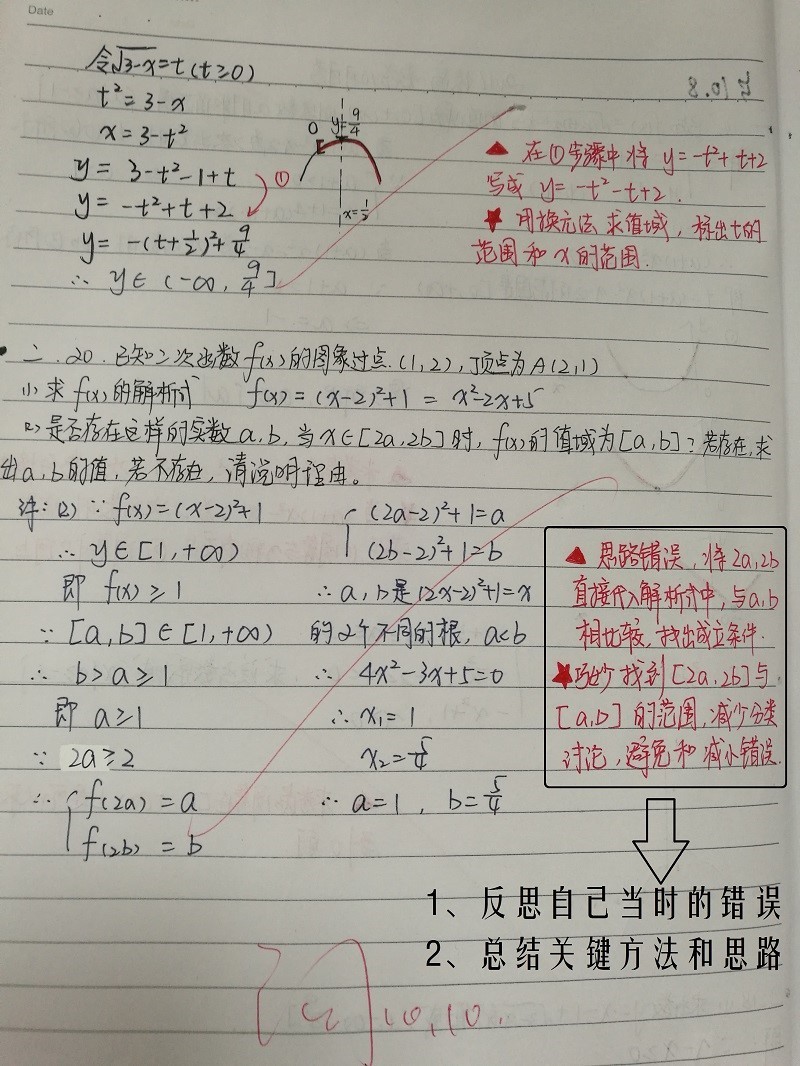 Date
令√3-x=t(t≥0)
t²=3-x
x=3-t²
y= 3-t²-1+t
y= -t²+t+2
①
y= -(t+1/2)²+9/4
∴ y∈(-∞, 9/4]
0 y=9/4
x=1/2
▲ 在①步骤中将 y=-t²+t+2
写成 y=-t²-t+2.
★ 用换元法求值域，标出t的
范围和x的范围.
二.20.已知二次函数f(x)的图象过点(1,2),顶点为A(2,1)
(1)求f(x)的解析式 f(x)=(x-2)²+1=x²-2x+5
(2)是否存在这样的实数a,b,当x∈[2a,2b]时,f(x)的值域为[a,b]?若存在,求
出a,b的值,若不存在,请说明理由。
(2)∵f(x)=(x-2)²+1
∴y∈[1,+∞)
即 f(x)≥1
∵[a,b]∈[1,+∞)
∴ b>a≥1
即 a≥1
∵ 2a≥2
∴{f(2a)=a
f(2b)=b
{(2a-2)²+1=a
(2b-2)²+1=b
∴a,b是(2x-2)²+1=x
的2个不同的根,a<b
∴ 4x²-3x+5=0
∴x₁=1
x₂=5/4
∴a=1, b=5/4
▲ 思路错误,将2a,2b
直接代入解析式中,与a,b
相比较,找出成立条件.
★巧妙找到[2a,2b]与
[a,b]的范围,减少分类
讨论,避免和减小错误.
1、反思自己当时的错误
2、总结关键方法和思路
10,10.